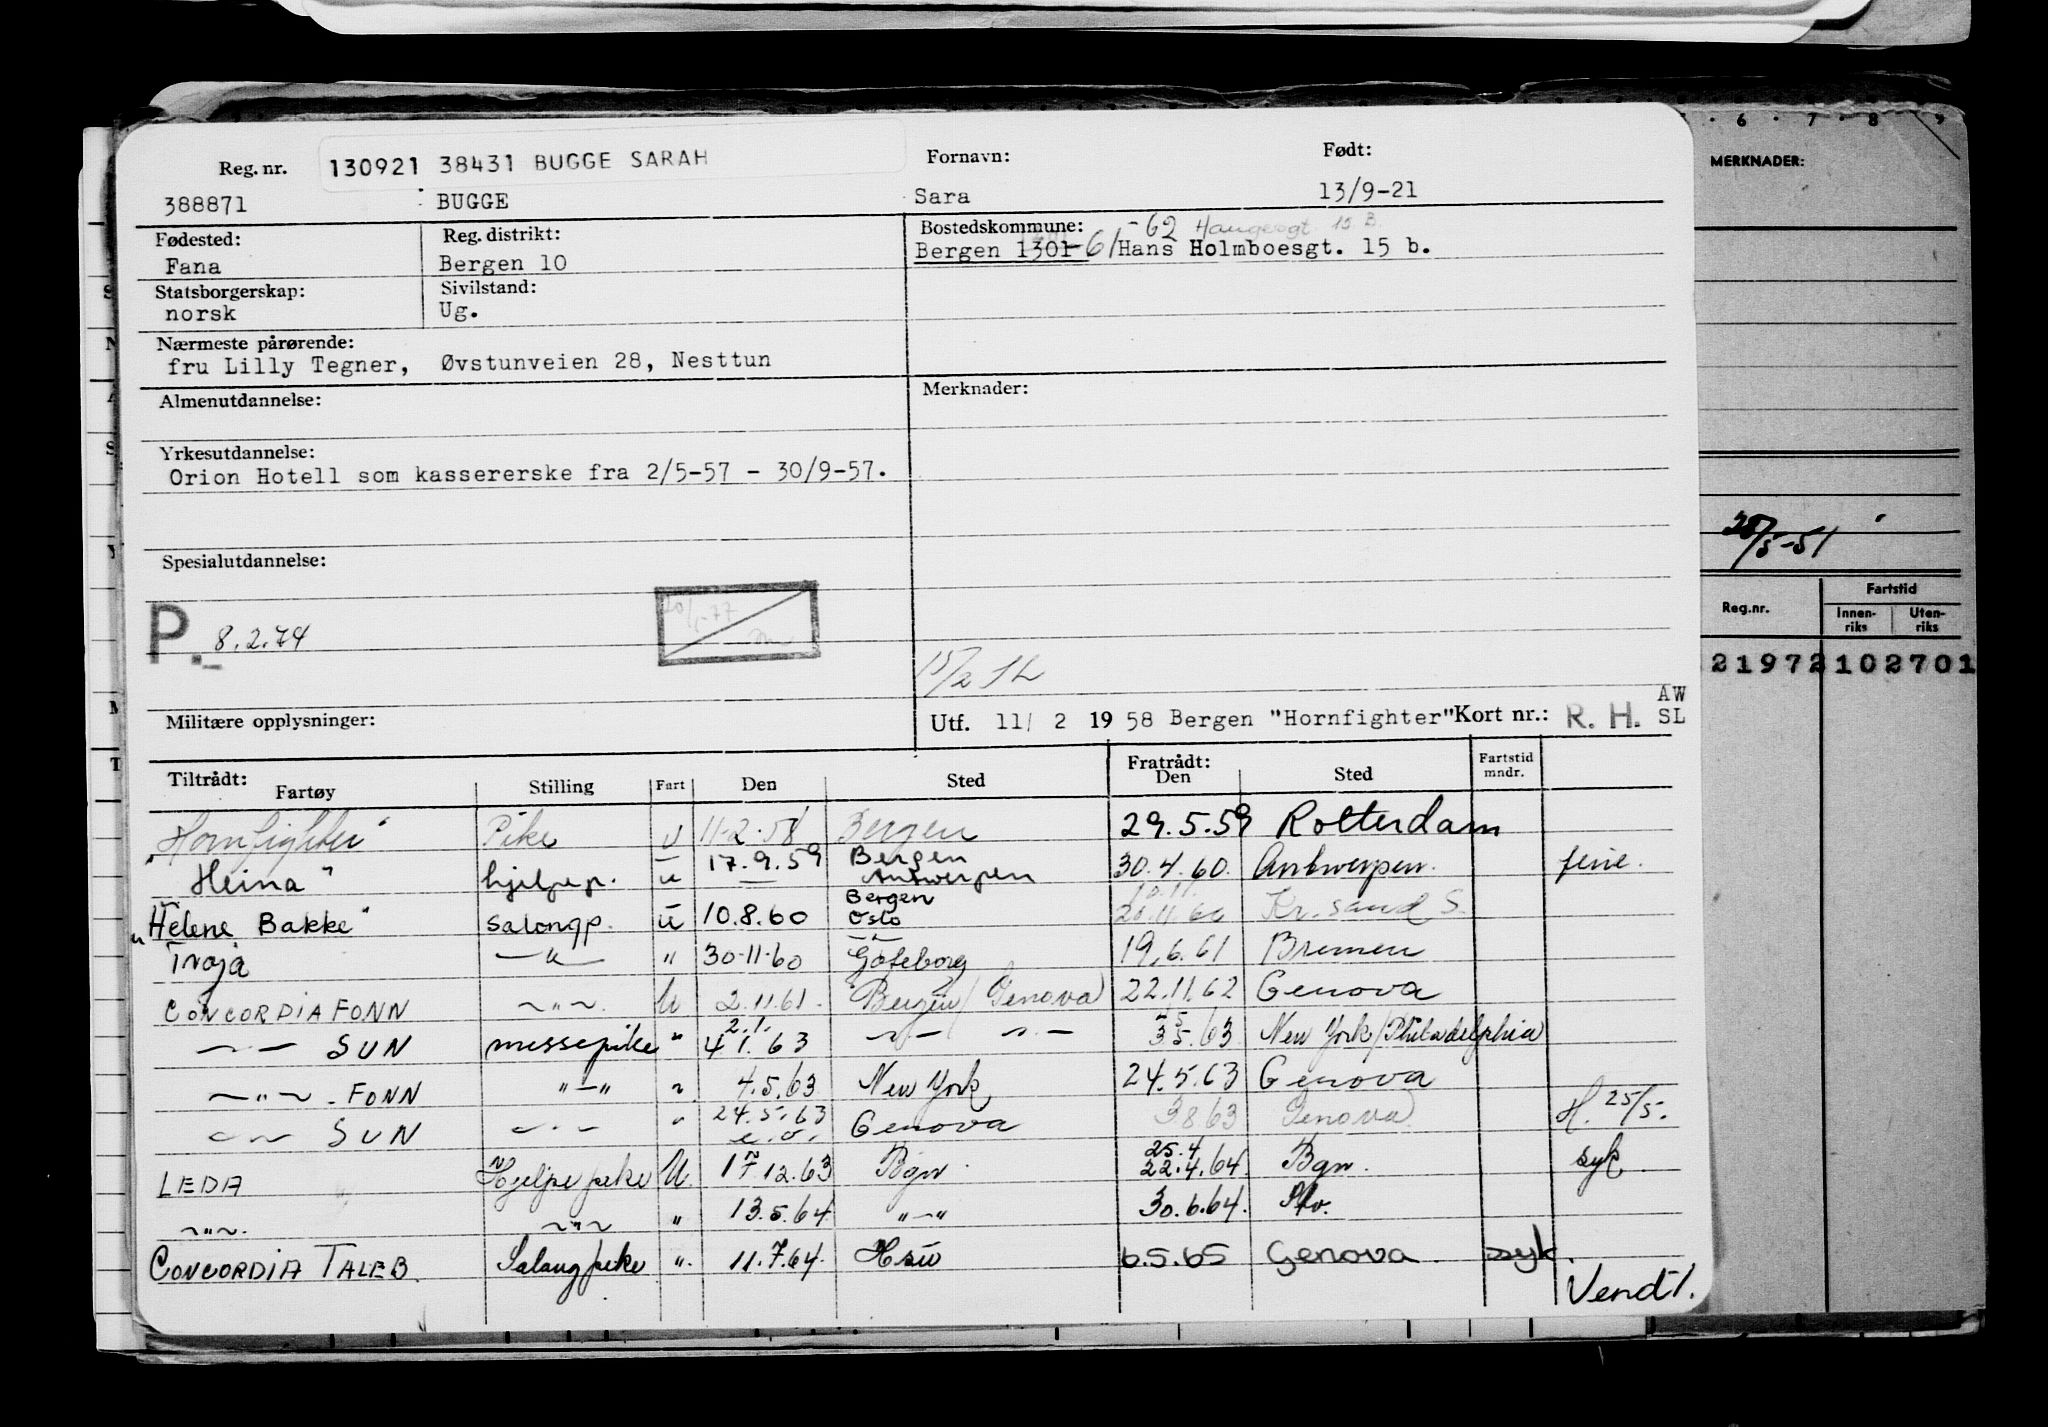 Reg. nr. 130921 38431 BUGGE SARAH Fornavn: Født:
388871 BUGGE Sara 13/9-21
Fødested: Reg. distrikt: Bostedskommune: -62 Haugesgt 15 B.
Fana Bergen 10 Bergen 1301-61 Hans Holmboesgt. 15 b.
Statsborgerskap: Sivilstand:
norsk Ug.
Nærmeste pårørende:
fru Lilly Tegner, Øvstunveien 28, Nesttun
Almenutdannelse: Merknader:
Yrkesutdannelse:
Orion Hotell som kassererske fra 2/5-57 - 30/9-57.
Spesialutdannelse:
P. 8.2.74
15/2 SL
Militære opplysninger: Utf. 11/ 2 19 58 Bergen "Hornfighter" Kort nr.: R. H. AW SL
Tiltrådt: Fratrådt:
Fartøy Stilling Fart Den Sted Den Sted Fartstid mndr.
"Hornfighter" Pike u 11-2-58 Bergen 29.5.59 Rotterdam
"Heina" hjelpep. u 17.9.59 Bergen Antwerpen 30.4.60. Antwerpen. ferie.
"Helene Bakke" salongp. u 10.8.60 Bergen Oslo 20.11.60 Kr.sand S.
Troja —"— " 30-11-60 Göteborg 19.6.61 Bremen
CONCORDIA FONN ~"~ U 2.11.61. Bergen/Genova 22.11.62 Genova
~—SUN messepike " 2.1. 4.1.63 ~—~—3.5.63 New York/Philadelphia
~"~. FONN "—" " 4.5.63 New York 24.5.63 Genova
~~ SUN ~"~ " 24.5.63 Genova 3.8.63 Genova H. 25/5.
LEDA Hjelpepike U. 17.12.63 Bgn. 25.4 22.4.64. Bgn. syk
~"~. ~"~ " 13.5.64 "—" 30.6.64. Stv.
CONCORDIA TALEB. Salongpike ". 11.7.64. 6.5.65 Genova syk.
Vend!.
6 7 8 9
MERKNADER:
28/5-51
Reg.nr. Fartstid
Innen-riks Uten-riks
21972 102701